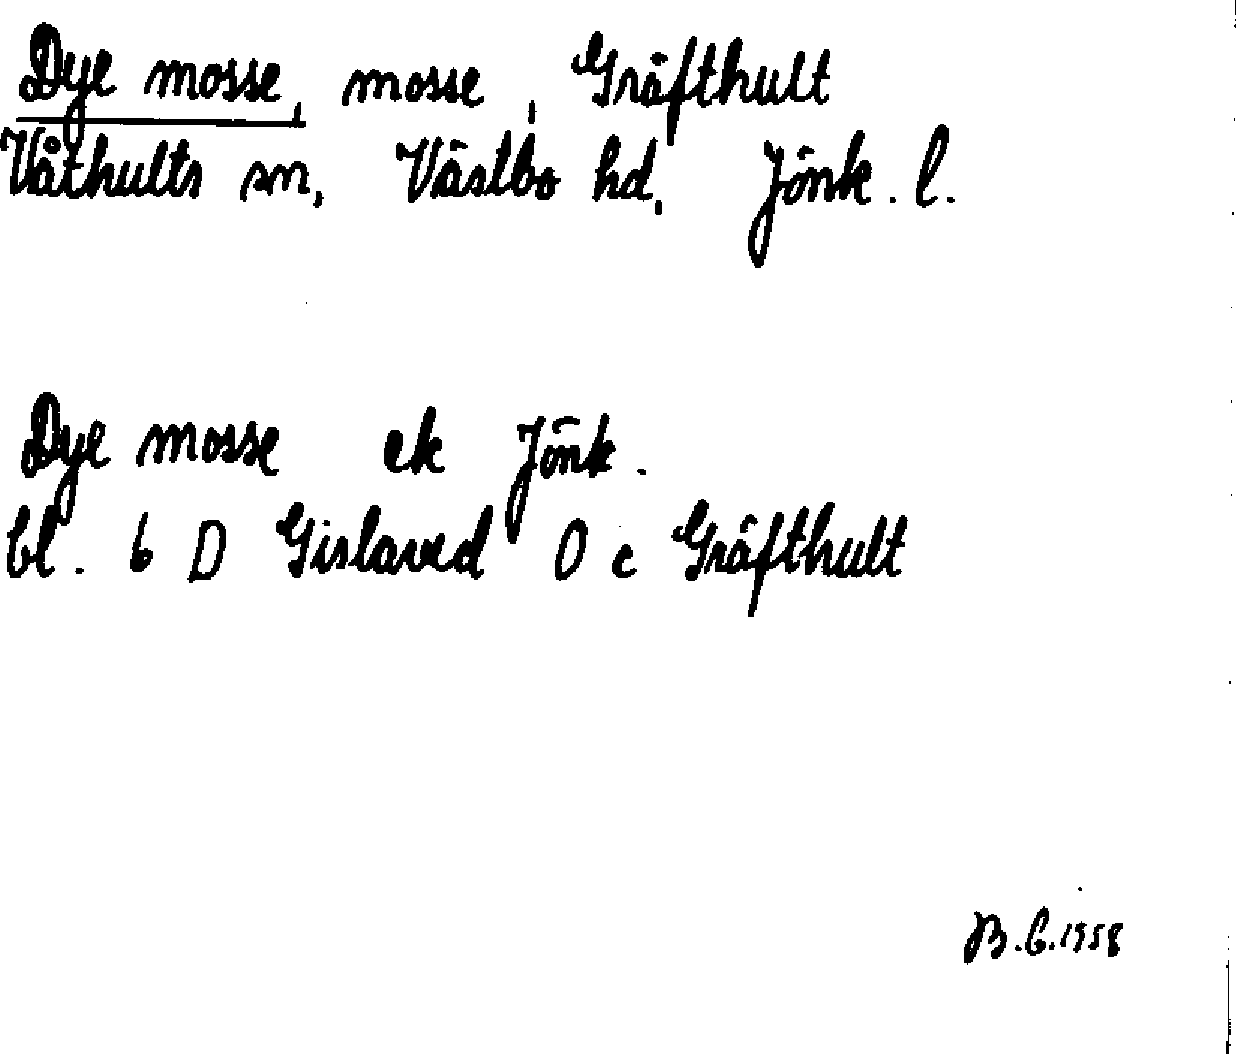 Dye mosse, mosse, Gräfthult
Våthults sn, Västbo hd, Jönk. l.
Dye mosse ek Jönk.
bl. 6 D Gislaved 0 c Gräfthult
B.G. 1958